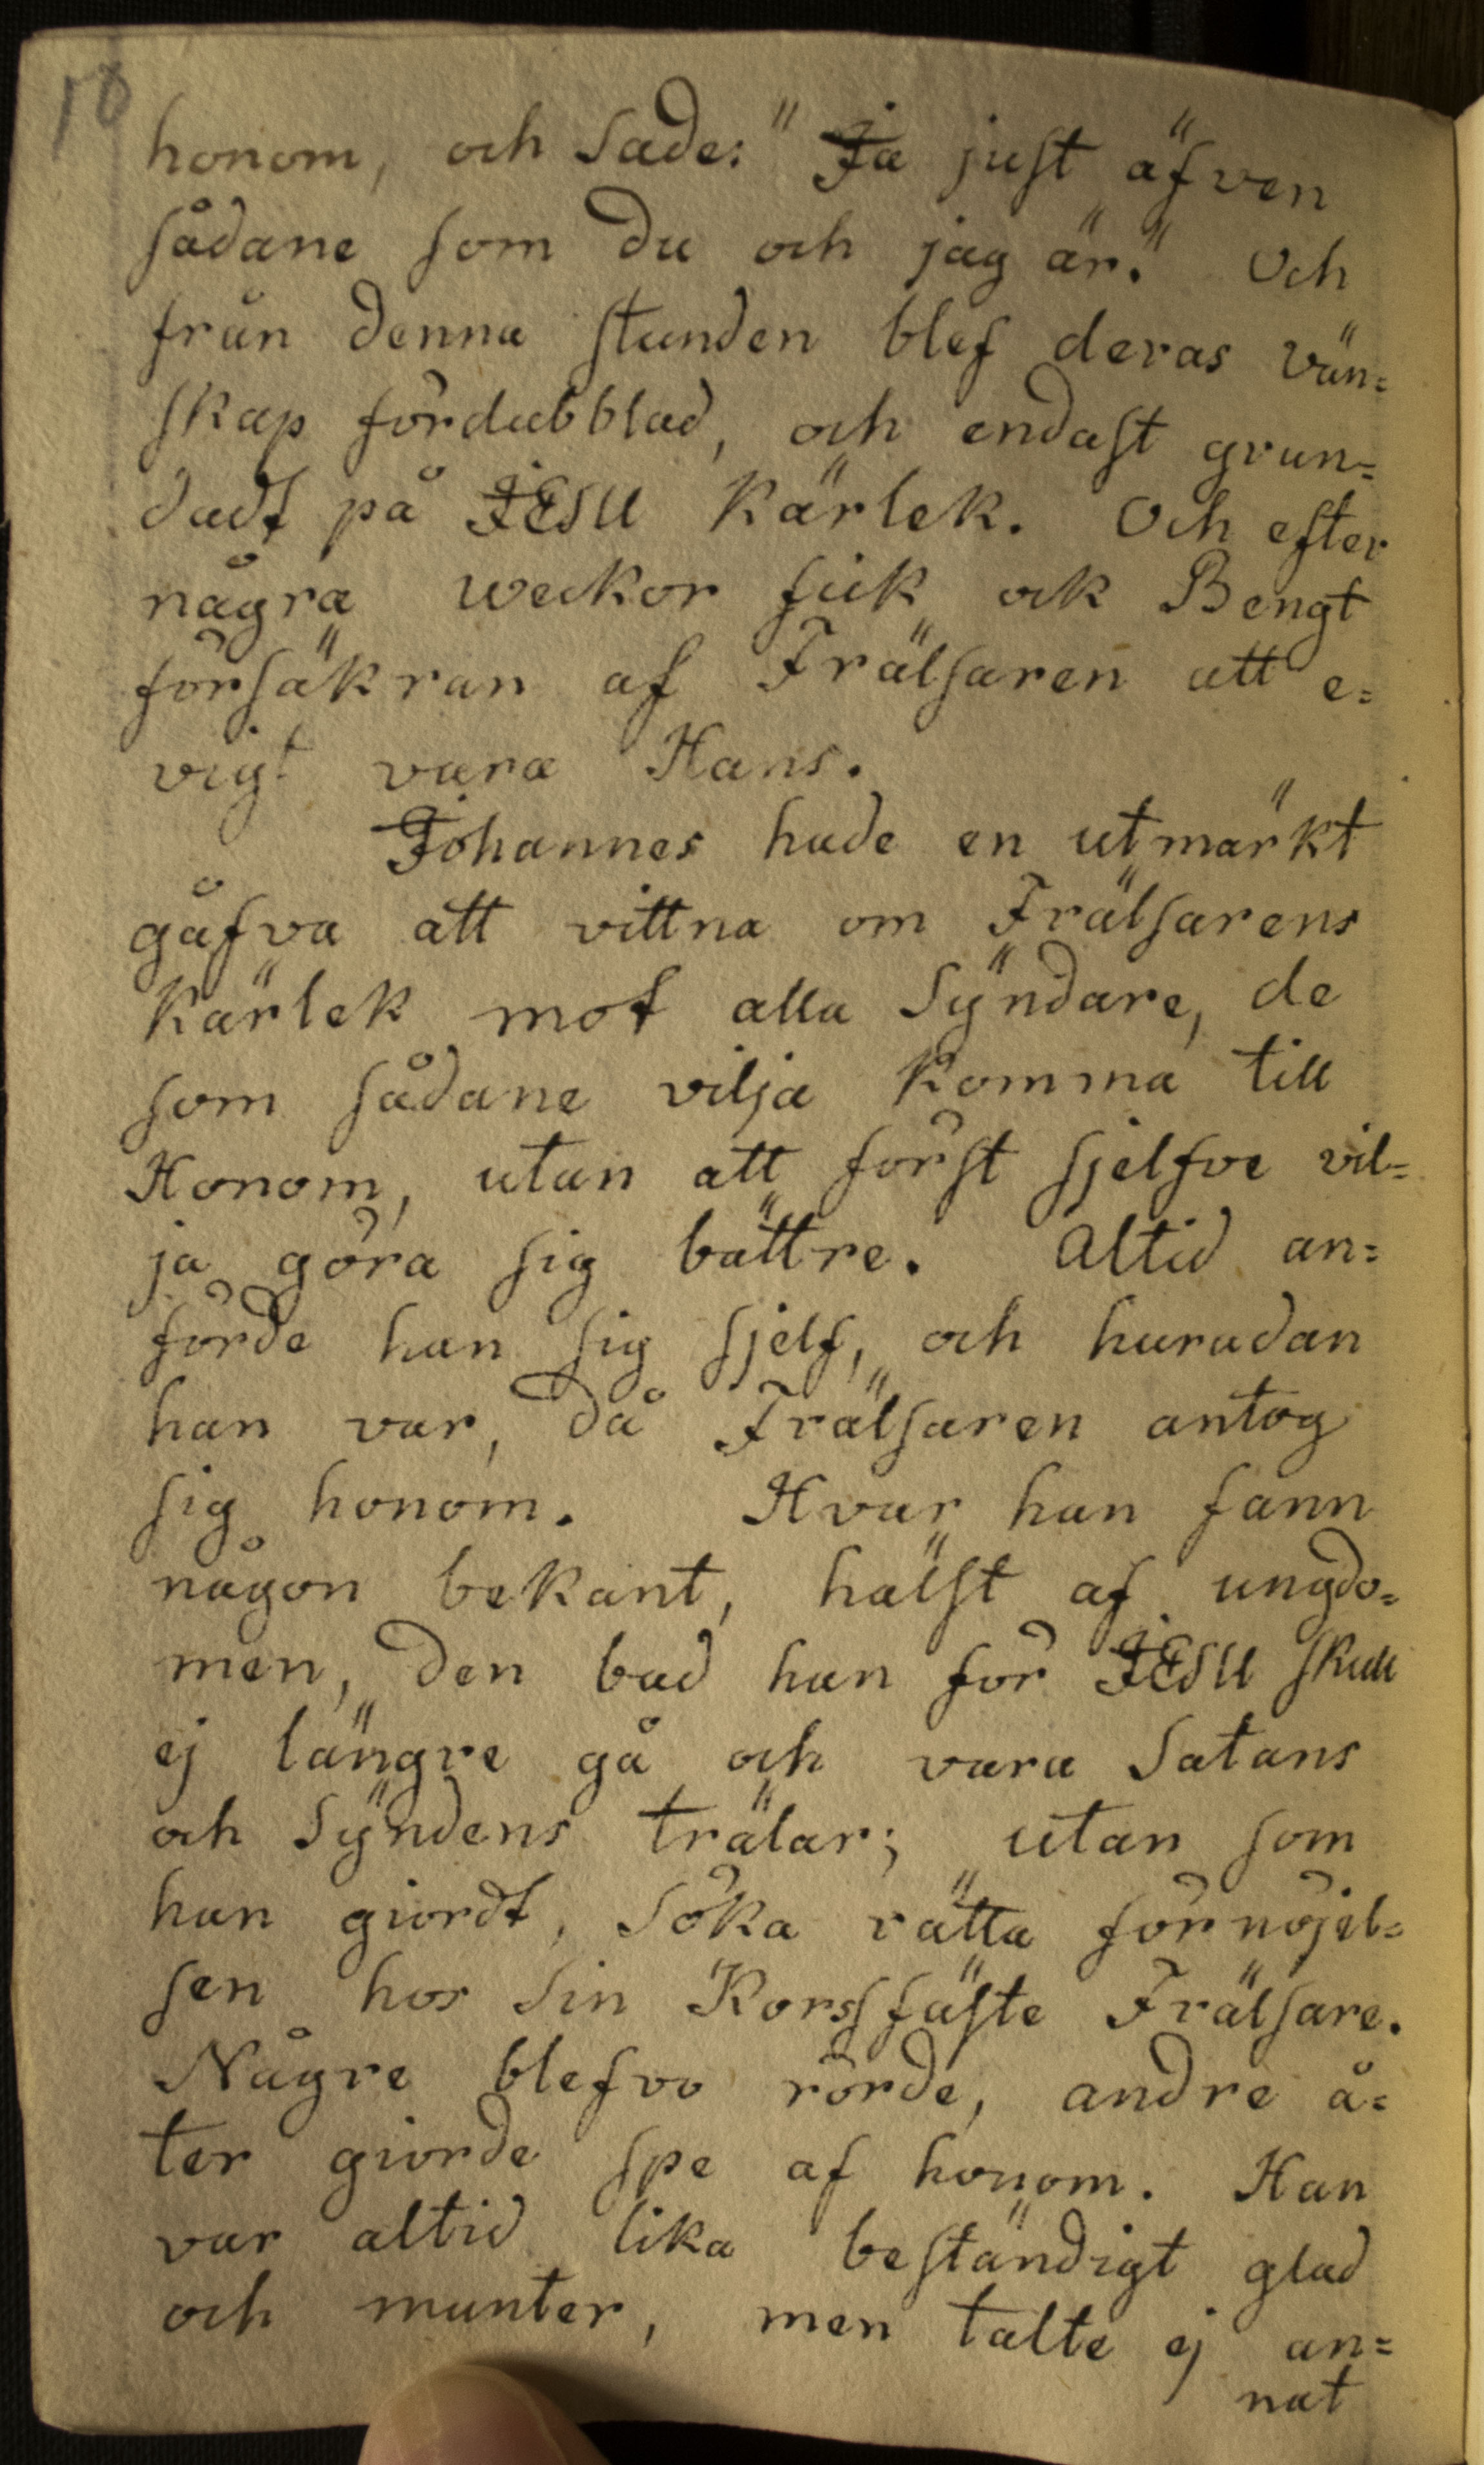 18
honom, och Sade: "Ja just äfven
sådane som du och jag är." Och
från denna stunden blef deras vän=
skap fördubblad, och endast grun=
dadt på JESU Kärlek. Och efter
några weckor fick ock Bengt
försäkran af Frälsaren att e=
vigt vara Hans.
Johannes hade en utmärkt
gåfva att vittna om Frälsarens
Kärlek mot alla Sÿndare, de
som sådane vilja Komma till
Honom, utan att först sjelfve vil=
ja göra sig bättre. Altid an=
förde han sig sjelf, och hurudan
han var, då Frälsaren antog
sig honom. Hvar han fann
någon beKant, hälst af ungdo=
men, den bad han för JESU skull
ej längre gå och vara Satans
och Sÿndens trälar; utan som
han giordt, Söka rätta förnöjel=
sen hos Sin Korssfäste Frälsare.
Någre blefvo rörde, andre å=
ter giorde spe af honom. Han
var altid lika beständigt glad
och munter, men talte ej an=
nat